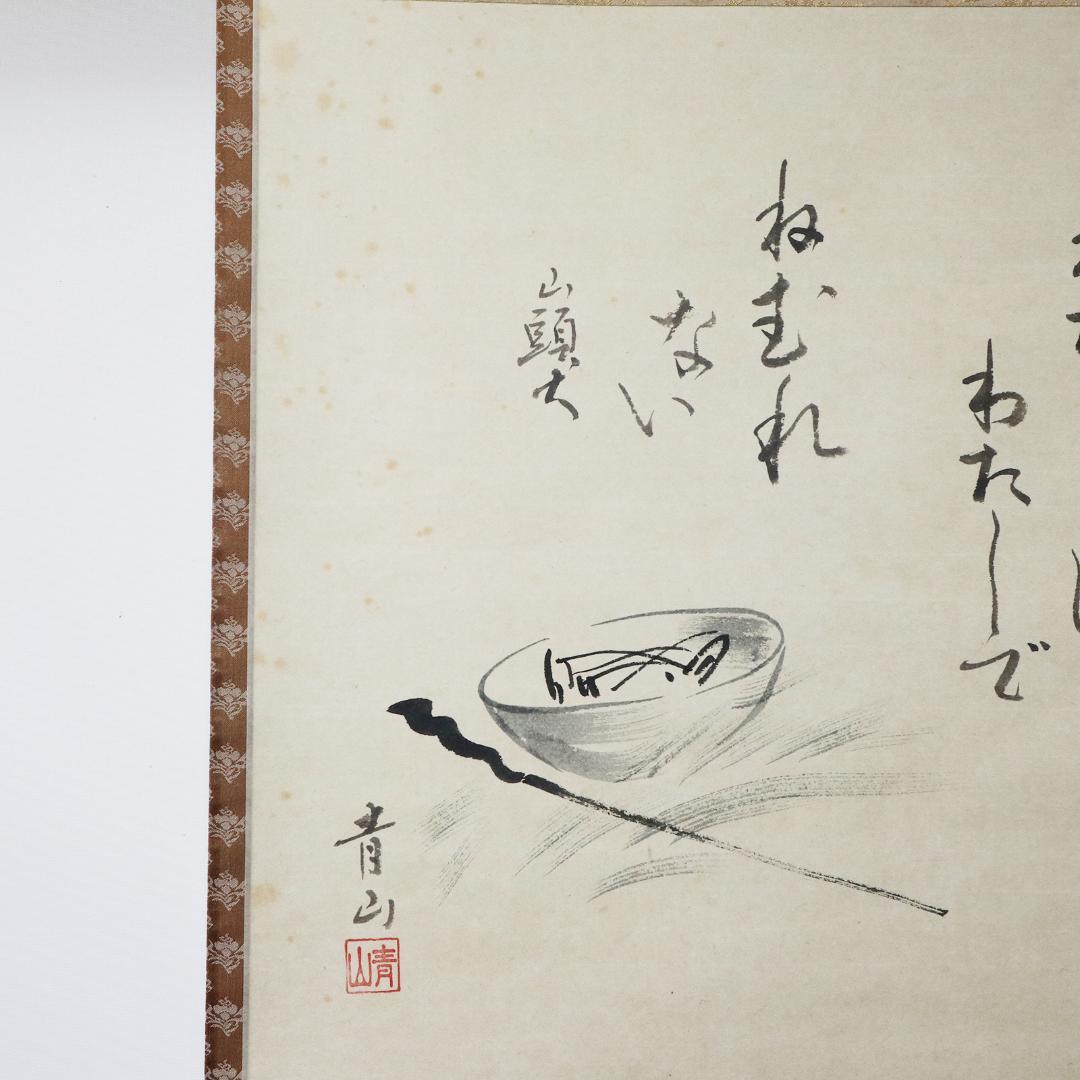 わたしで
ねむれ
ない
山頭火
青山
青山